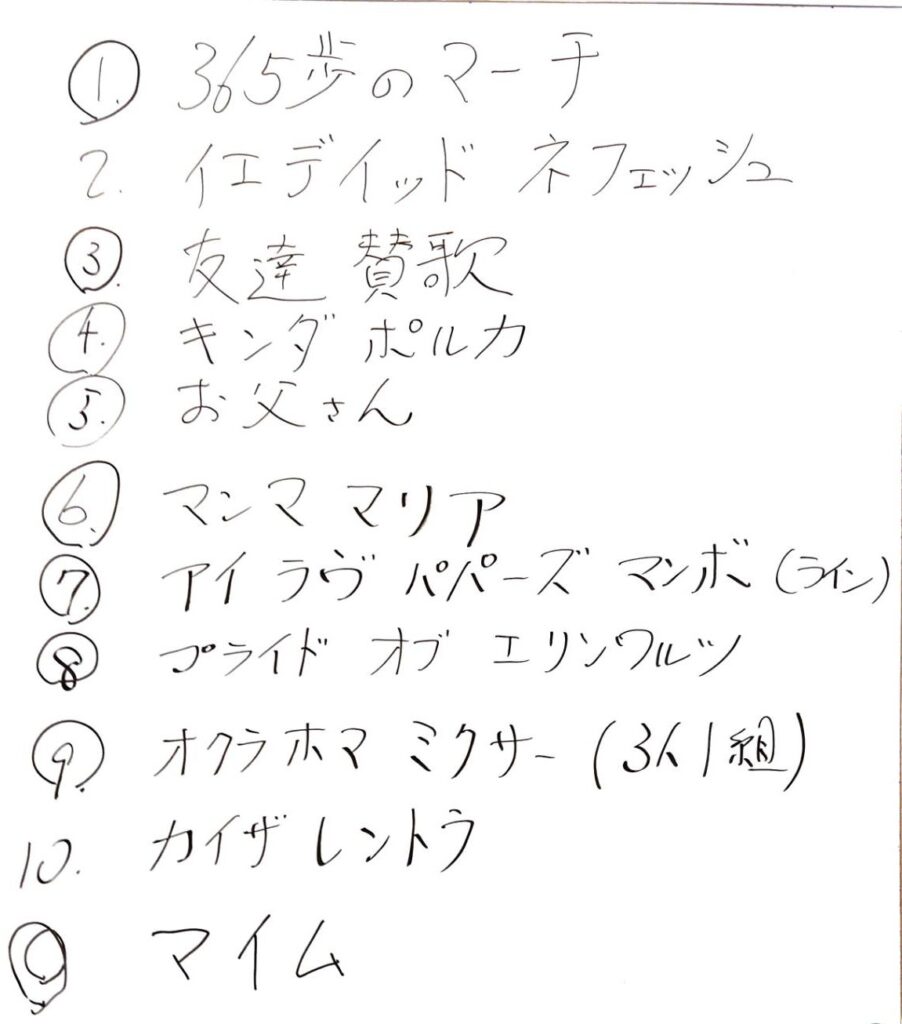 ① 365歩のマーチ
2. イエデイッド ネフェッシュ
③ 友達 賛歌
④ キンダ ポルカ
⑤ お父さん
⑥ マンマ マリア
⑦ アイ ラヴ パパーズ マンボ (ライン)
⑧ プライド オブ エリンワルツ
⑨ オクラホマ ミクサー (3人1組)
10. カイザ レントラ
◎ マイム